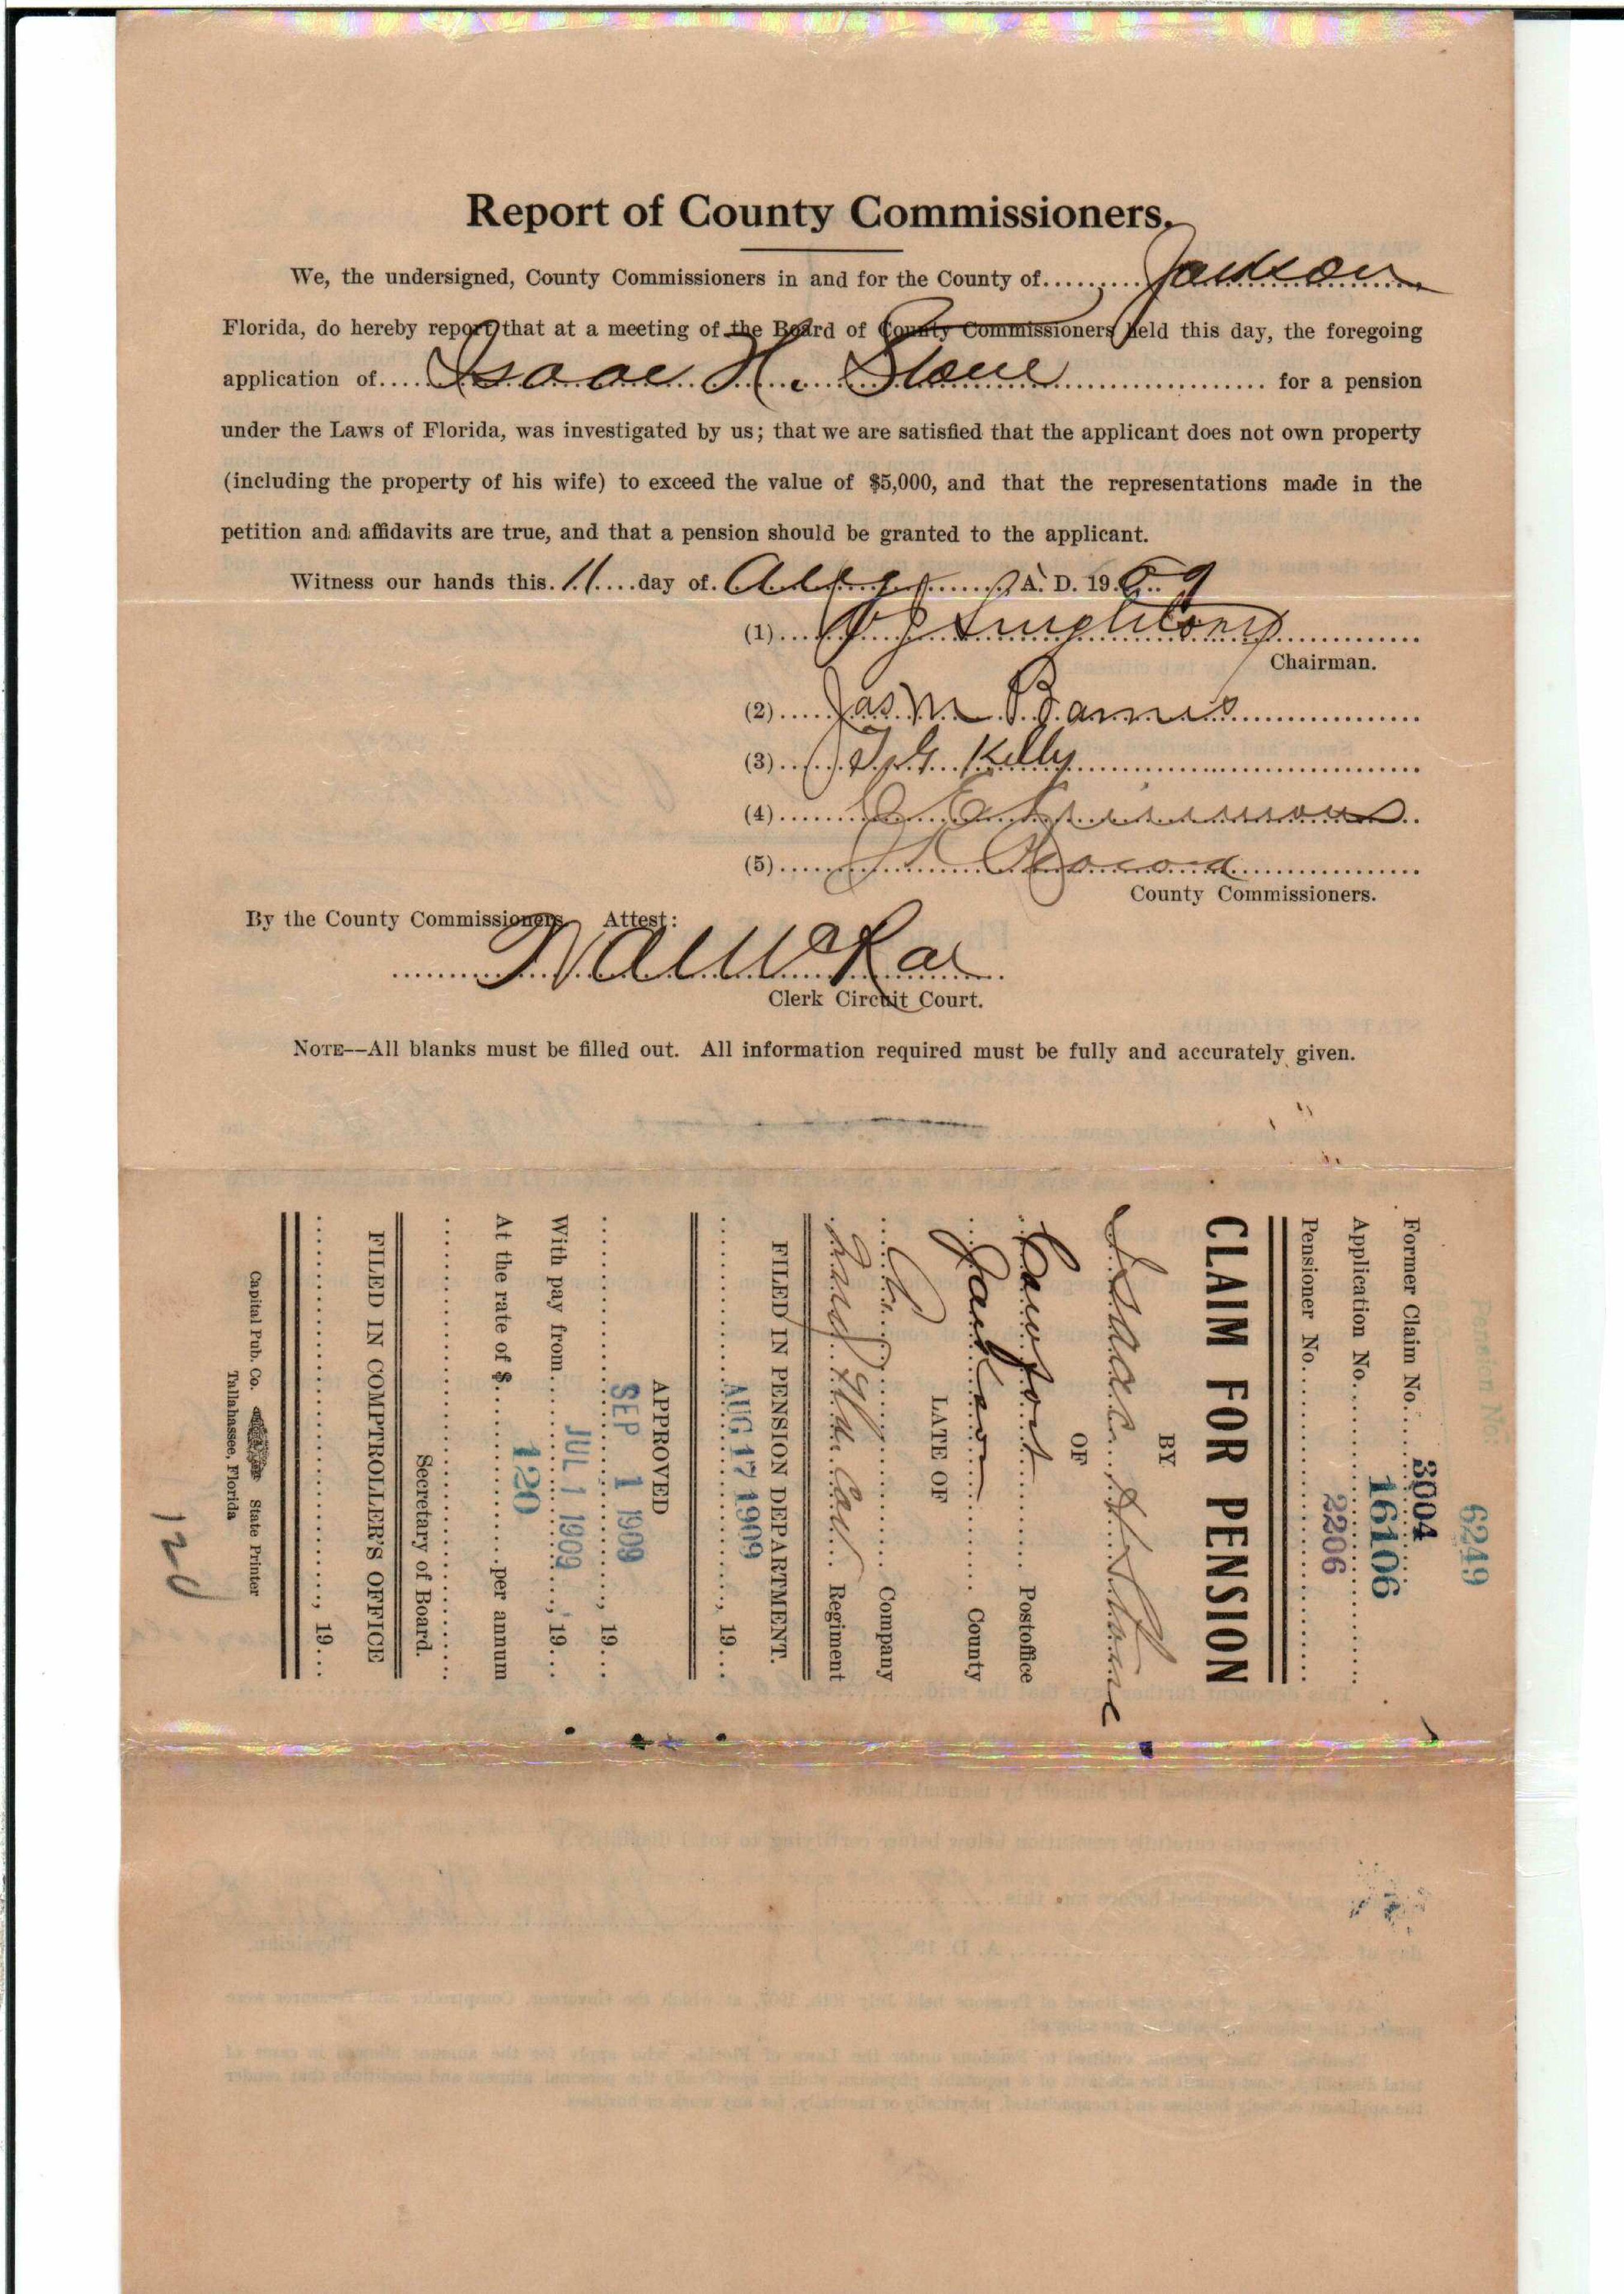 Report of County Commissioners.
We, the undersigned, County Commissioners in and for the County of Jackson
Florida, do hereby report that at a meeting of the Board of County Commissioners held this day, the foregoing
application of Isaac H. Stone for a pension
under the Laws of Florida, was investigated by us; that we are satisfied that the applicant does not own property
(including the property of his wife) to exceed the value of $5,000, and that the representations made in the
petition and affidavits are true, and that a pension should be granted to the applicant.
Witness our hands this 11 day of Aug A. D. 1909
(1) Singletory
Chairman.
(2) Jas M Barnes
(3) Kelly
(4)
(5)
County Commissioners.
By the County Commissioners Attest:
McRae
Clerk Circuit Court.
NOTE--All blanks must be filled out. All information required must be fully and accurately given.
6249
Pension No.
Former Claim No. 3004
Application No. 16106
Pensioner No. 2206
CLAIM FOR PENSION
BY
Isaac H. Stone
OF
Postoffice
Jackson County
LATE OF
Company
Cav Regiment
FILED IN PENSION DEPARTMENT.
AUG 17 1909, 19
APPROVED
SEP 1 1909, 19
With pay from JUL 1 1909, 19
At the rate of $ 120 per annum
Secretary of Board.
FILED IN COMPTROLLER'S OFFICE
, 19
Capital Pub. Co. State Printer
Tallahassee, Florida
120